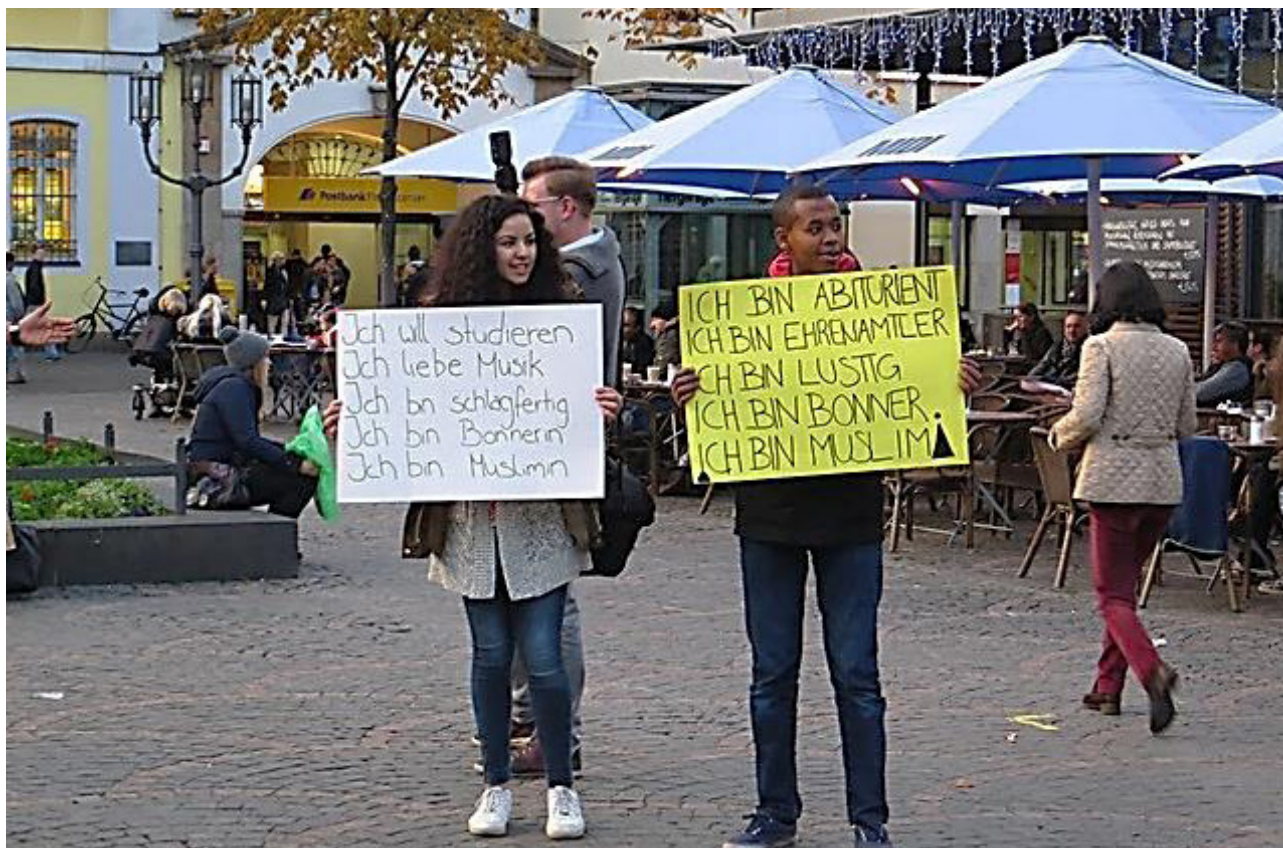 Postbank
Ich will studieren
Ich liebe Musik
Ich bin schlagfertig
Ich bin Bonnerin
Ich bin Muslimin
ICH BIN ABITURIENT
ICH BIN EHRENAMTLER
ICH BIN LUSTIG
ICH BIN BONNER.
ICH BIN MUSLIM!